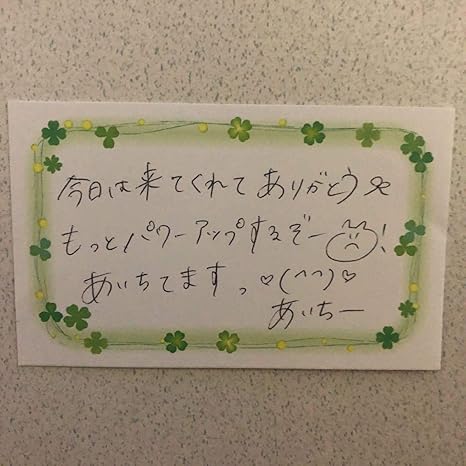 今日は来てくれてありがとう
もっとパワーアップするぞー!
あいちてますっ♡(^^)♡
あいちー